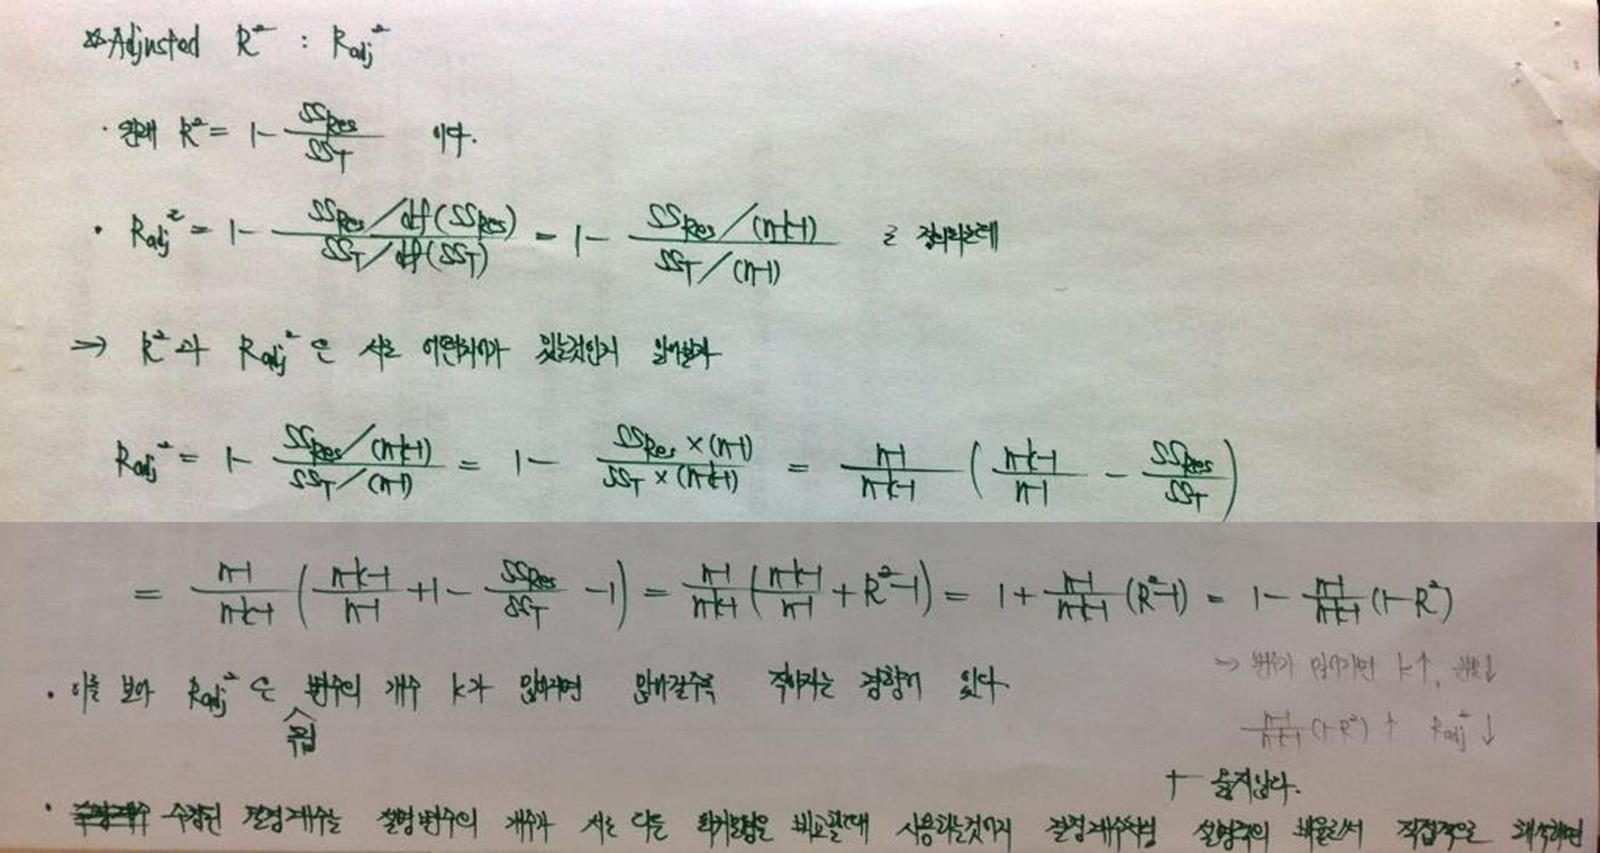 ☆Adjusted R² : Radj²
· 원래 R² = 1 - SSRes/SST 이다.
· Radj² = 1 - (SSRes/df(SSRes))/(SST/df(SST)) = 1 - (SSRes/(n-k-1))/(SST/(n-1)) 로 정의하는데
→ R²과 Radj²은 서로 어떤차이가 있는것인지 알아보자
Radj² = 1 - (SSRes/(n-k-1))/(SST/(n-1)) = 1 - (SSRes×(n-1))/(SST×(n-k-1)) = (n-1)/(n-k-1) ( (n-k-1)/(n-1) - SSRes/SST )
= (n-1)/(n-k-1) ( (n-k-1)/(n-1) + 1 - SSRes/SST - 1 ) = (n-1)/(n-k-1) ( (n-k-1)/(n-1) + R² - 1 ) = 1 + (n-1)/(n-k-1) (R²-1) = 1 - (n-1)/(n-k-1) (1-R²)
→ 변수가 많아지면 k↑, 분모↓
· 이를 보아 Radj²은 독립 변수의 개수 k가 많아지면 많아질수록 작아지는 경향이 있다.
(n-1)/(n-k-1) (1-R²) ↑ Radj² ↓
옳지않다.
· 수정된 결정계수는 설명변수의 개수가 서로 다른 회귀모형을 비교할때 사용하는것이지 결정계수처럼 설명력의 비율로서 직접적으로 해석하면